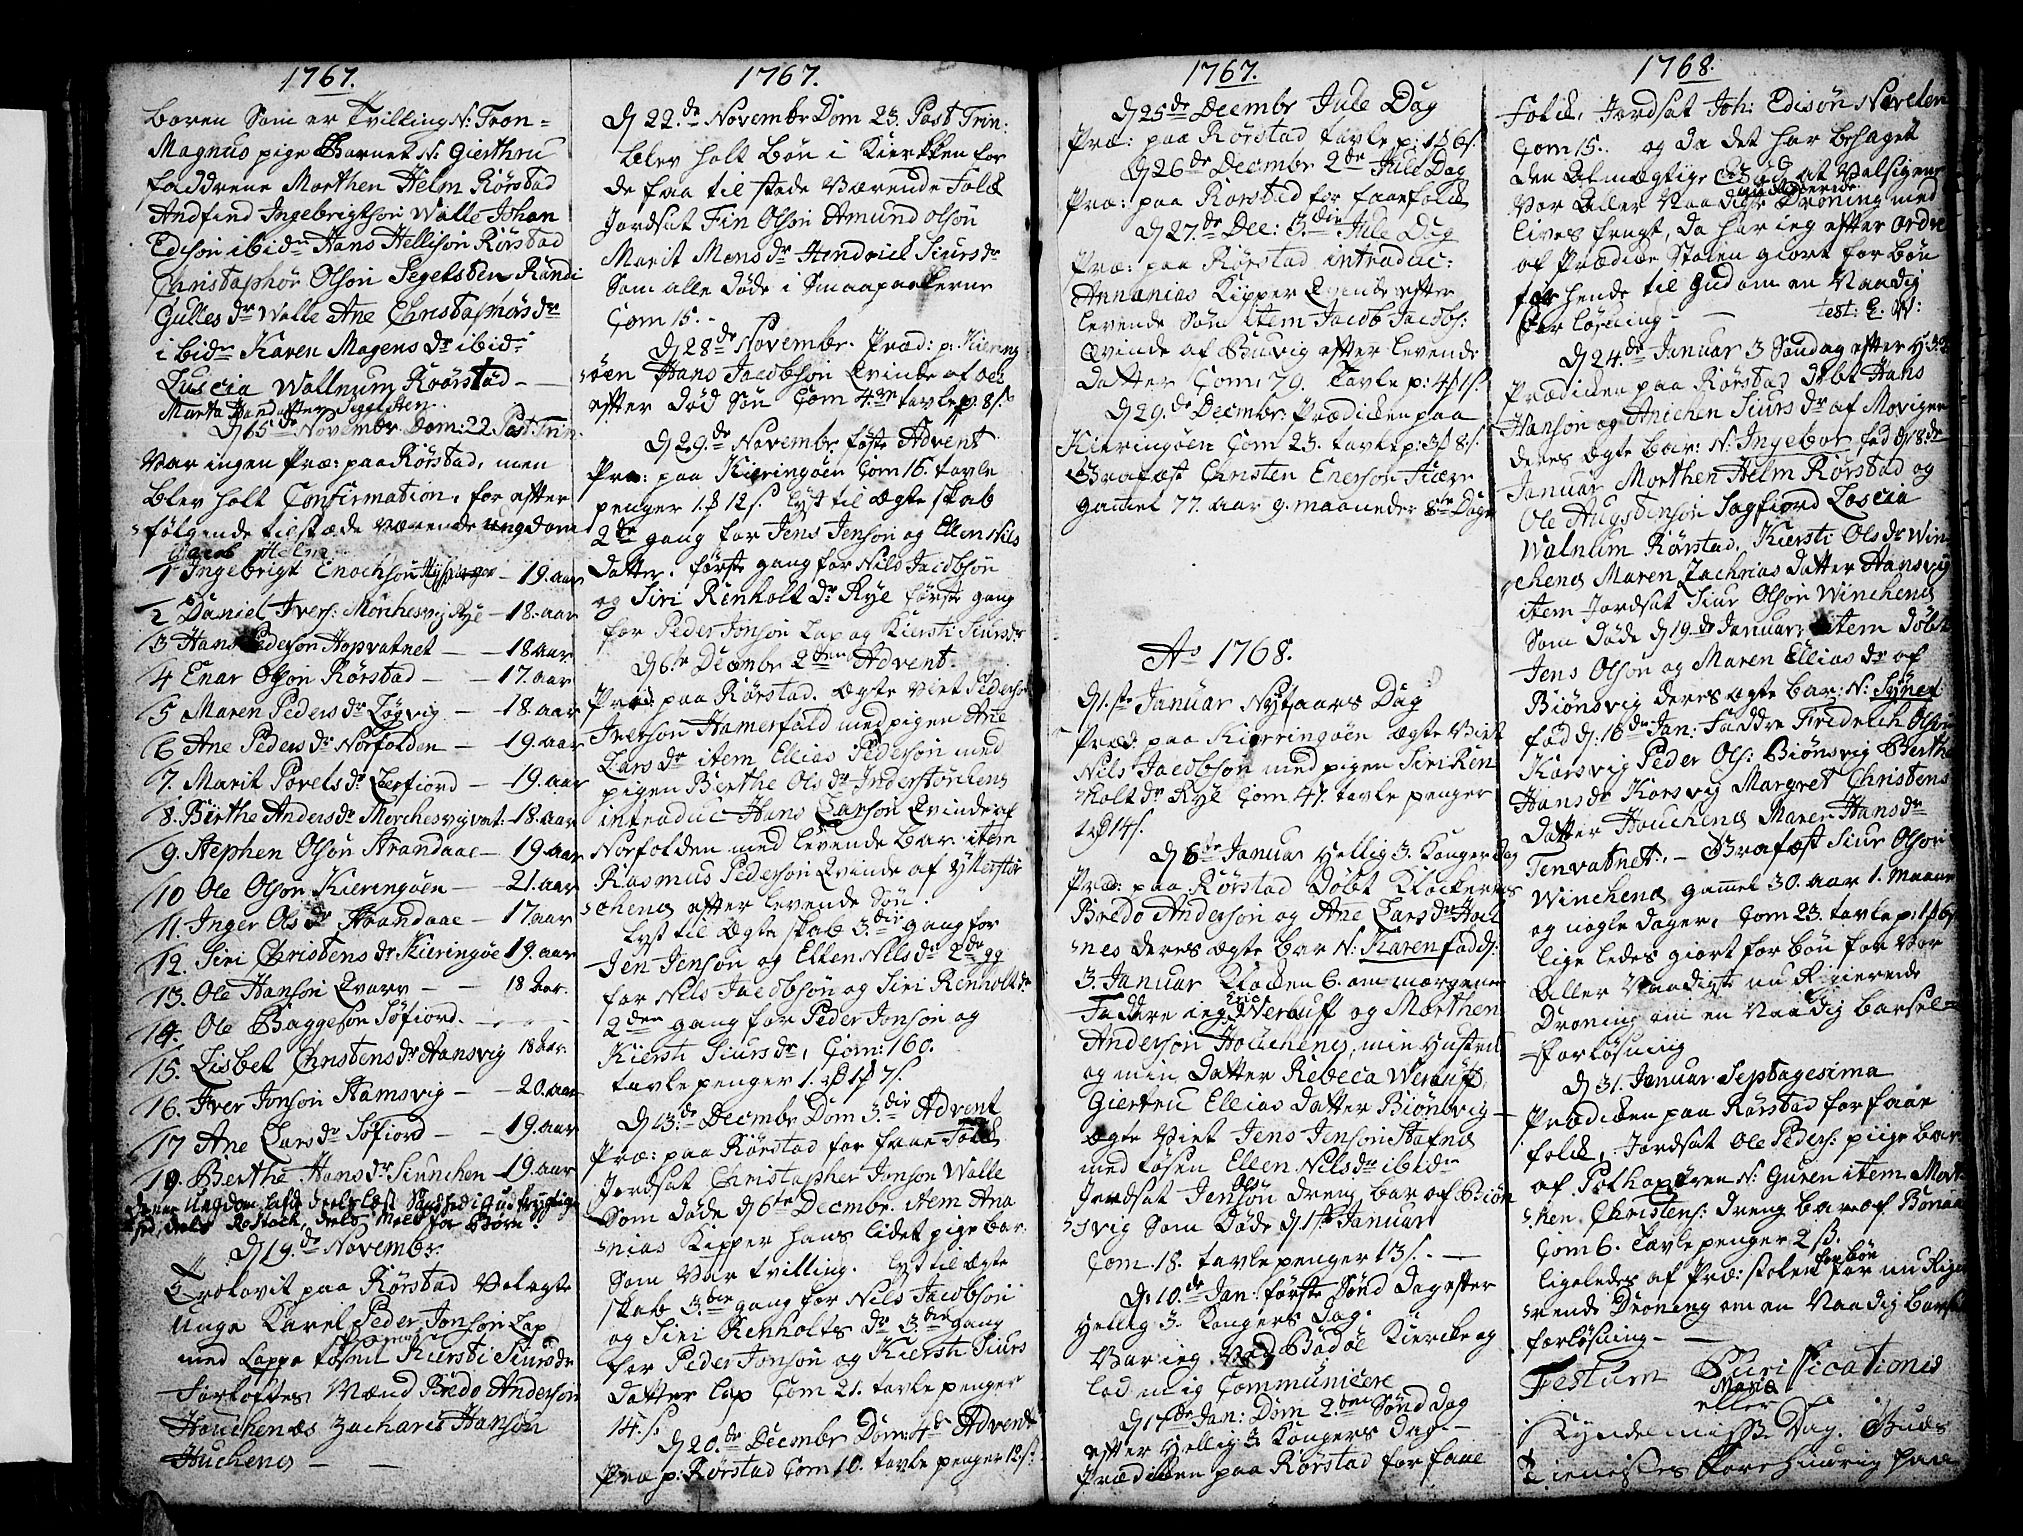 1767.
baren Som er Tvilling N: Tron=
Magnus pige Barnet N. Gierthru
faddrene Morthen Helm Rørstad
Andfind Ingebrigtson Walle Johan
Edison ibid: Hans Hellison Rørstad
Christopher Olson Segelsten Randi
Gulles dr Walle Ane Christophers dr
ibid: Karen Magens dr ibid:
Luscia Wallnum Rørstad -
Marta Handatter Segelsten.
D 15de Novembr Dom: 22 Post Trin:
Var ingen Præ: paa Rørstad, men
blev holt Confirmation, for efter
følgende tilstæde værende ungdom
Jacob Helm
1 Ingebrigt Enochson - 19. aar
2 Daniel Ivers: Mørchesvig Rye - 18. aar
3 Hans Pederson Hopvatnet - 18 aar
4 Enar Olson Rørstad - 17. aar
5 Maren Peders dr Løgvig - 18. aar
6 Ane Peders dr Norfolden - 19. aar
7. Marit Povels dr Leerfiord - 19. aar
8. Birthe Anders dr Mørchesvigvat. 18. aar
9. Stephen Olson Strandaae - 19 aar
10 Ole Olson Kieringøen - 21. aar
11. Inger Ols dr Strandaae - 17. aar
12. Siri Christens dr Kieringøe 19. aar
13. Ole Hanson Qvarv - 18 Aar.
14. Ole Baggeson Søfiord. -
15. Lisbet Christens dr Hansvig 18 aar.
16. Iver Jonson Stamsvig - 20. aar
17 Ane Lars dr Søfiord - 19. aar
19. Berthe Hans dr Sinnchen 19. aar
D 19. de Novembr.
Trolovit paa Rørstad Velagte
Unge Karel Peder Jonson Lap
med Lappe Kiersti Siurs dr
Forlofteş Mænd Bredo Anderson
Houchenæs Zacharis Hanson
Huchenes -
1767.
D 22.de Novembr Dom 23. Post Trin:
blev holt bøn i Kierkken for
de faa til stade Værende Folk
Jordsat Fin Olson Amund olson
Marit Mons dr Hendrick Siurs dr
Som alle døde i Smaapaakerne
Com 15. -
D 28de Novembr. Præd: p. Kiering
øen Hans Jacobson Qvinde af
efter død Søn Com 42. tavle p. 8 s.
D 29. de Novembr. føste Advent
Præ: paa Kieringøen Com 16. tavle
penger 1. 12 s. lyst til Ægte skab
2de gang for Jens Jenson og Ellen Nils
datter. første gang for Nils Jacobson
og Siri Renholt dr Rye første gang
for Peder Jonson Lap og Kiersti Siurs dr
D 6te Decmbr 2den Advent.
Præd: paa Rørstad. Ægte Viet Peders
Iverson Hamerfald med pigen Ane
Lars dr item Ellias Pederson med
pigen Berthe Ols dr Inderstøchens
introduc Hans Larson Qvinde af
Norfolden med levende bar: item
Rasmus Pederson Qvinde af Ytterstø
chens efter levende Søn.
Lyst til Ægte skab 3die gang for
Jen Jenson og Ellen Nils dr 2de gg
for Nils Jacobson og Siri Renholt dr
2den gang for Peder Jonson og
Kiersti Siurs dr, Com: 160.
tavle penger 1. 1 7 s.
D 13. de Decmbr Dom 3. die Advent
Præ: paa Rørstad for faae Folk
Jordsat Christopher Jonson Walle
Som døde D 6te Decmbr. item Ana
nias Kipper hans lidet pige bar:
Som Var tvilling. lyst til ægte
skab 3. die gang for Nils Jacobson
og Siri Renholts dr 3. die gang
for Peder Jonson og Kiersti Siurs
datter Lap Com 21. tavle penger
14. s.
D 20. de Decmbr Dom: 4de Advent
Præ p. Rørstad Com 10. tavle penger 12 s.
1767.
D 25de Decembr Jule Dag
Præ: paa Rørstad tavle p: 6 s.
D 26de Decmbr 2de Jule Dag
Præ: paa Rørstad for faae folk
D 27. de Dec: 3. die Jule Dag
Præ: paa Rørstad introduc:
Annanias Kipper Qvinde efter
levende Søn item Jacob Jacobs:
Qvinde af Buvig efter levende
datter Com. 79. Tavle p: 4 1 s.
D 29. de Decmbr. Prædicken paa
Kierringøen Com 23. tavle p: 3 8 s.
Brafæst Christen Enerson Kiær
gamel 77. aar 9. maaneder 8te Dage
Ao 1768.
D 1.ste Januar Nytaars Dag
Præd: paa Kierringøen Ægte Viet
Nils Jacobson med pigen Siri Ren
holt dr Rye Com 47. tavle penger
14 s.
D 6te Januar Hellig 3. Konger dag
Præd: paa Rørstad Døbt Klockerens
Bredo Anderson og Ane Lars dr Hoch
nes deres ægte bar N: Karen fød D.
3. Januar Klocken 6. om morgenen
Faddere ieg Eric Werauff og Morthen
Anderson Houchenes, min Hustru
og min datter Rebeca Werauff,
Giertru Ellias datter Biønsvig -
Ægte Viet Jens Jenson Stafnes
med tøsen Ellen Nils dr ibid:
Jordsat Jens Olson dreng bar af Biøn
svig Som døde D 1ste Januar
Com. 18. tavle penger 13 s. -
D 10. de Jan: første Sønd Dag efter
Hellig 3. Kongers Dag.
Var ieg Ved Bodøe Kiercke og
lod mig Communicere
D 17de Jan: Dom 2. den Sønd Dag
efter Hellig 3. Kongers Dag -
Prædicken paa Rørstad for faae
1768.
Folck, Jordsat Joh: Edisøn Navelen
Com 15. og da det har behaget
den Almægtige GUD at Velsigene
Vor Aller Naadigste Droning med
lives frugt, da har ieg efter ordre
af Prædicke Stolen giort for bøn
for hende til Gud om en Naadig
forløsning - test: E. W:
D 24de Januar 3 Søndag efter H: 3. K
Prædicken paa Rørstad døbt Hans
Hanson og Anichen Siurs dr af Movigen
deres Ægte bar: N: Ingebor fød D 8. de
Januar Morthen Helm Rørstad og
Ole Augstenson Sagfiord Loscia
Walnum Rørstad, Kiersti Ols dr Win
chenes Maren Zachrias datter Hansvig
item Jordsat Siur Olson Winchenes
Som døde D 19. de Januar, item døbt
Jens Olson og Maren Ellias dr af
Biønsvig deres Ægte bar: N: Synet
fød D: 16de Jan: Faddre Fredrich Olson
Korsvig Peder Ols. Biønsvig Berthe
Hans dr Korsvig Margret Christens
datter Houchenes Maren Hans dr
Tenvatnet. - Brafæst Siur Olson
Winchenes gamel 30. aar 1. Maane
og nogle dager, Com 23. tavle p: 1 6 s
lige ledes giort for bøn for Vor
Aller Naadigste nu Rigierende
Droning om en Naadig barsel=
forløsning
D 31. Januar Septagesima
Prædicken paa Rørstad for faae
folck, Jordsat Ole Peders: piige bar
af Pothopøren N: Guren item Mort
hen Christens: dreng bar af Bonaa
Com 6. Tavle penger 2 s.
ligeledes af Præ: stolen forbøn for nu Rige
rende Droning om en Naadig barsel
forløsning -
Festum Purificationis
Mariæ
eller
Kyndelmisse Dag. Guds
Tienestes forehavrig paa